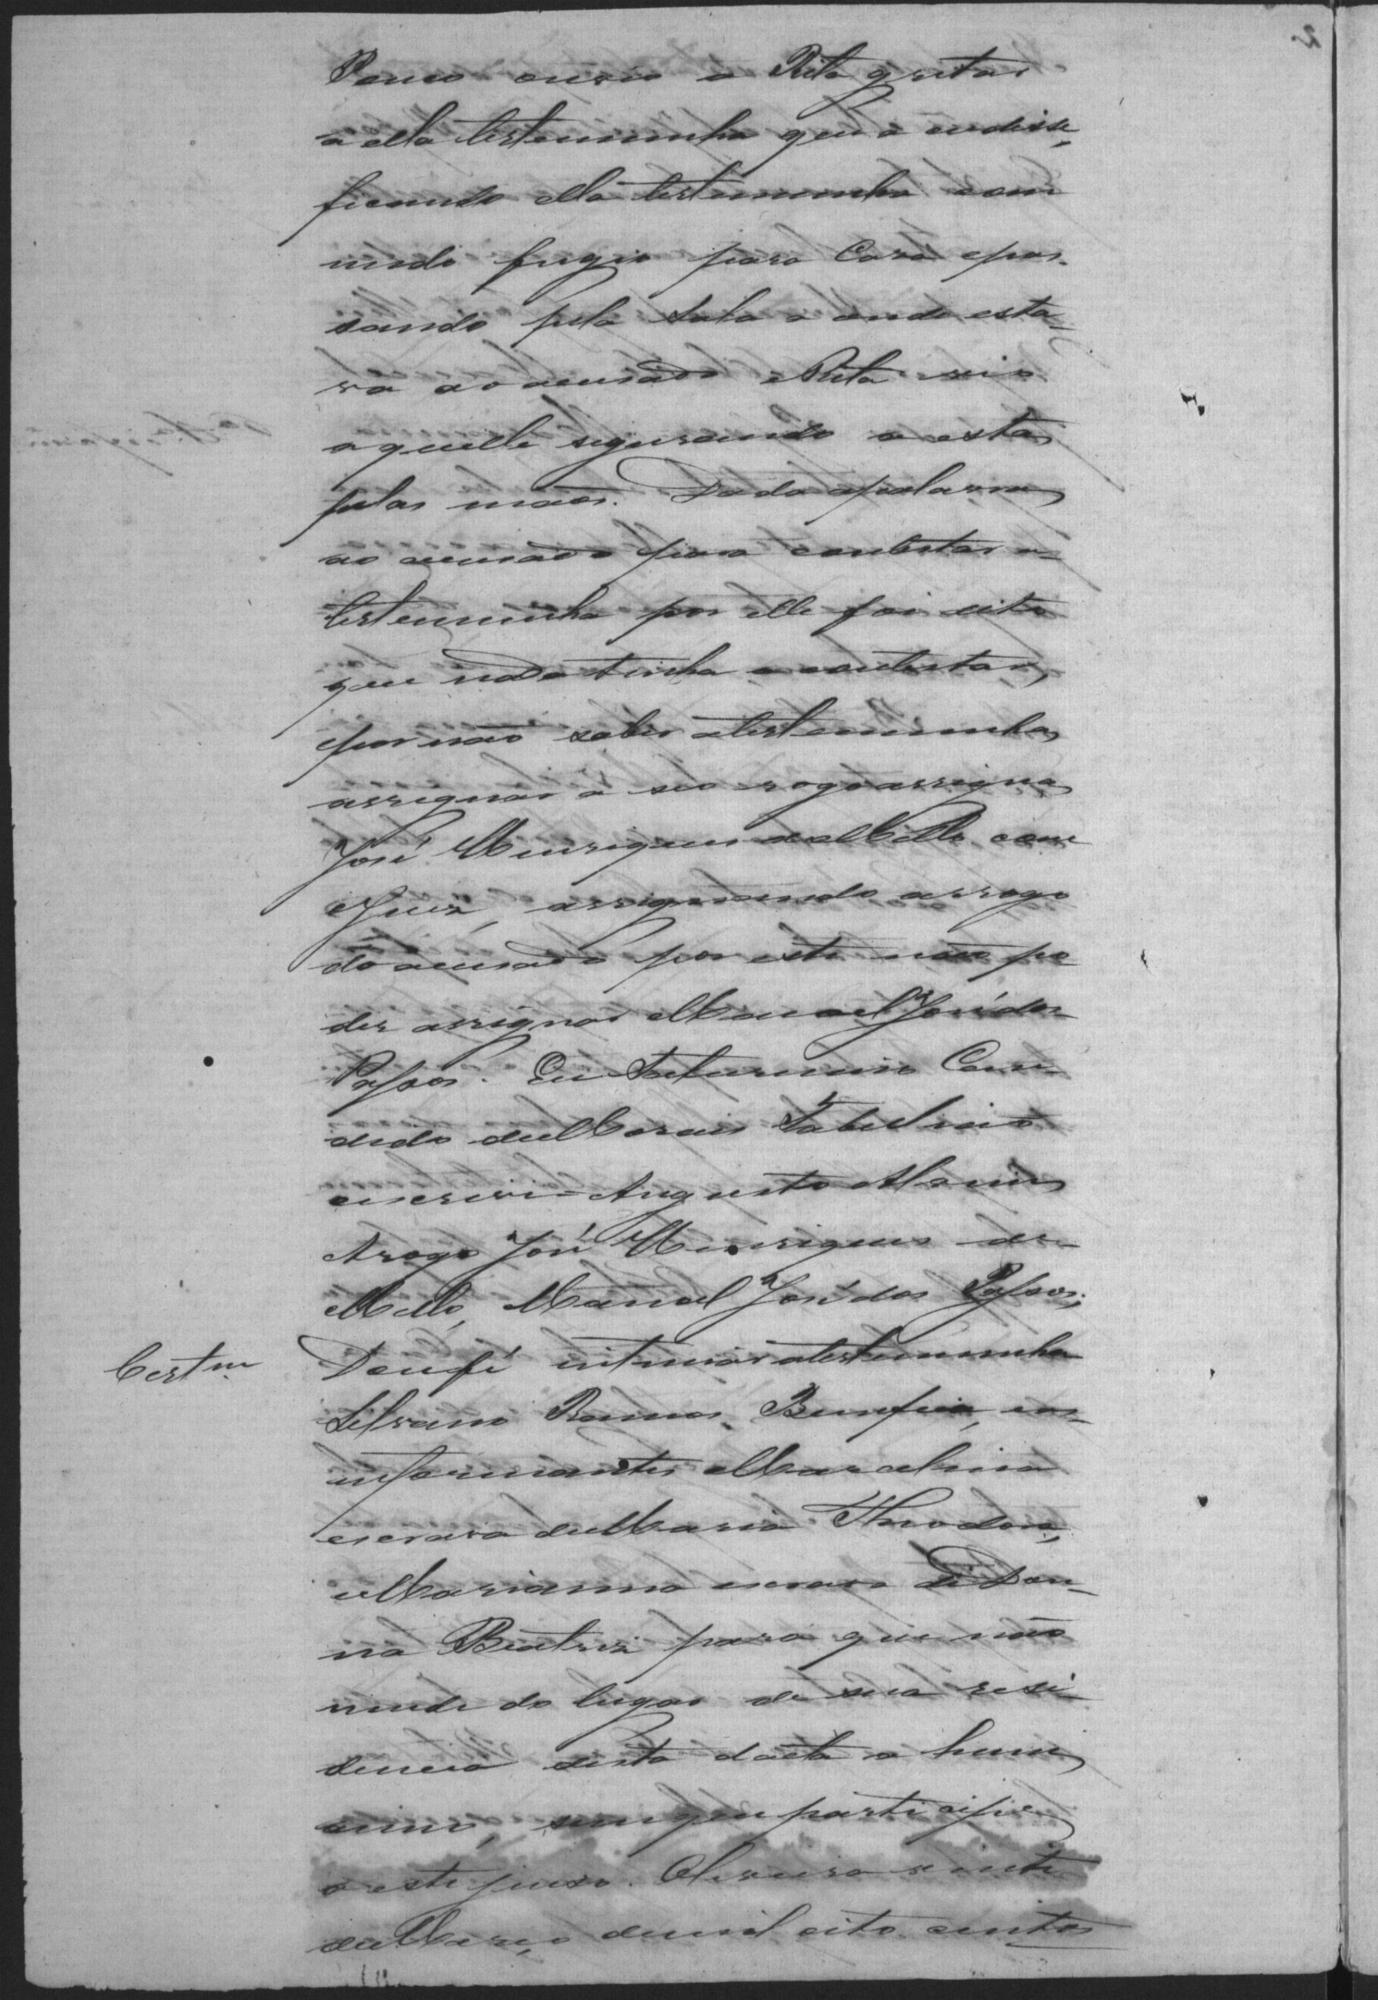 Pouco ouvio a Rita gritar
a ella testemunha que a acudisse,
ficando ella testemunha com
medo fugio para Casa e pas-
sando pela Sala a onde esta-
va ao acusado e Rita vio
aquelle segurando a esta
pelas mãos. Dada a palavra
ao acusado para contestar a
testemunha por elle foi dito
que nada tinha a contestar,
e por não saber a testemunha
assignar a seo rogo assigna
José Henriques de Mello com
o Juiz, assignando a rogo
do acusado por este não po
der assignar Manoel José dos
Passos. Eu Saturnino Can-
dido de Moraes Tabellião
escrevi - Augusto
A rogo José Henriques de
Mello, Manoel José dos Passos,
Certm. Dou fé intimar a testemunha
Ramos, e os
informantes Marcelina
escrava de Maria Theodora,
e Marianna escrava de Don-
na Beatriz para que não
mude do lugar de sua resi
dencia desta data a hum
anno, sem que participe
a este juizo. Oliveira vinte
de Março de mil oito centos